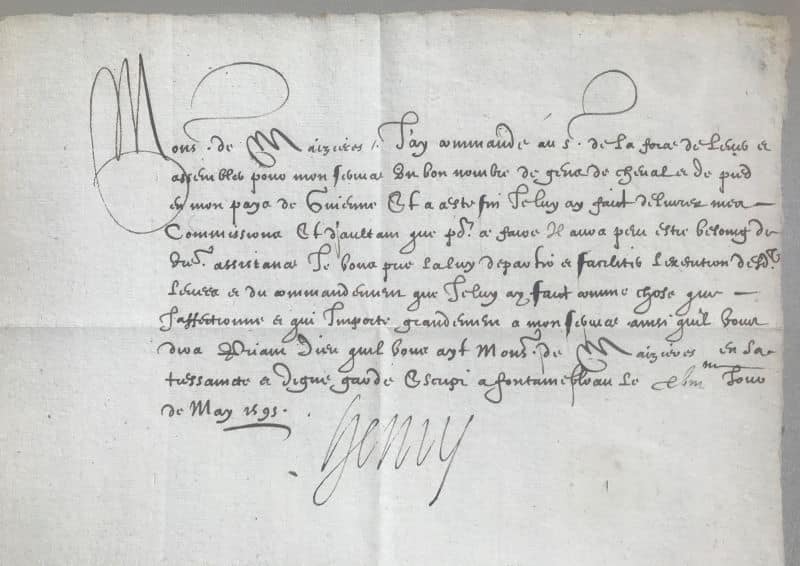 Mons.r de Maizieres, J'ay commande au s.r de la force de lever et
assembler pour mon service Un bon nombre de gens de cheval et de pied
en mon pays de Guienne Et a ceste fin Je luy ay faict delivrer mes
Commissions Et d'aultant que p.r ce faire Il aura peu estre besoing de
vre. assistance Je vous prie la luy departir et faciliter l'execution desd.
levees et du commandement que Je luy ay faict comme chose que
J'affectionne et qui Importe grandement a mon service ainsi qu'il vous
dira Priant Dieu qu'il vous ayt Mons.r de Maizieres en sa
tressaincte et digne garde Escript a fontainebleau le Jour
de May 1595.
Henry